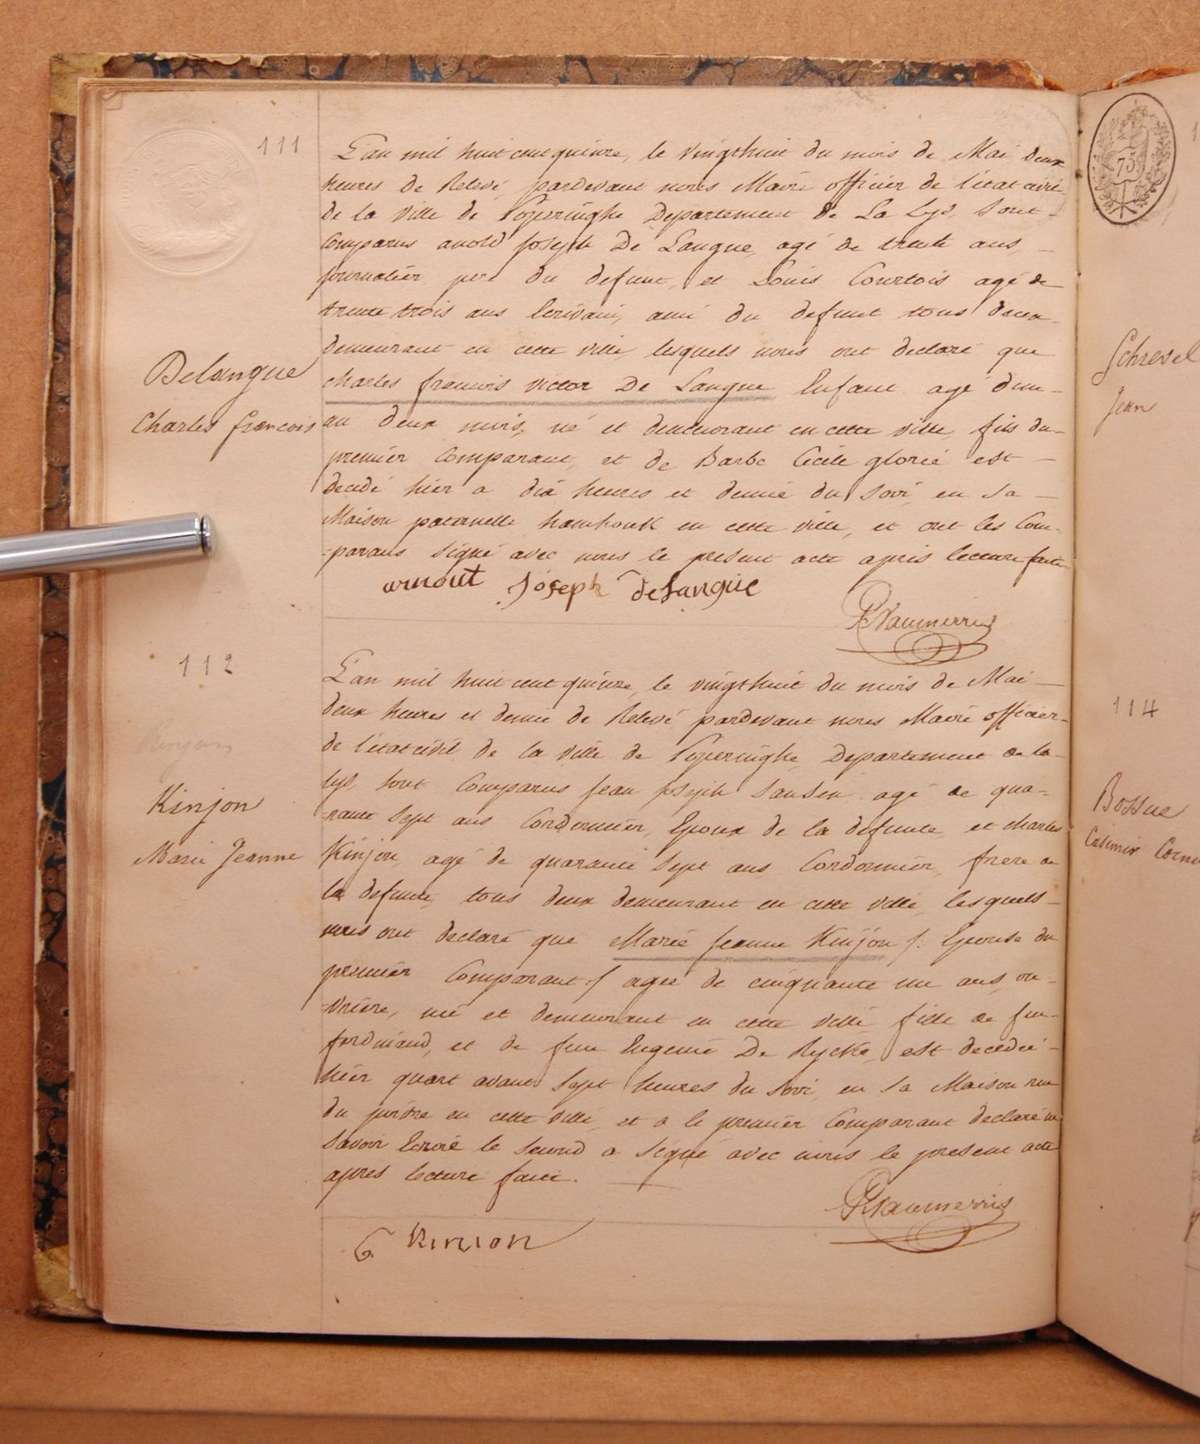 111
L'an mil huit cent quinze, le vingthuit du mois de Mai deux
heures de Relevé pardevant nous Maire officier de l'état civil
de la Ville de Poperinghe Departement de La Lys, sont
Comparus Joseph De Langue, agé de trente ans,
journalier, pere du defunt, et Louis Courtois agé de
trente trois ans Ecrivain, ami du defunt tous deux
demeurant en cette ville lesquels nous ont declaré que
Delangue
Charles francois
charles francois victor De Langue Enfant agé d'un
an deux mois, né et demeurant en cette ville, fils du
premier Comparant, et de Barbe Cecile glorie est
decedé hier a dix heures et demie du soir, en sa
Maison paternelle hamhouk en cette ville, et ont les Com-
parans signé avec nous le present acte apres lecture faite
arnout Joseph deLangue
112
L'an mil huit cent quinze, le vingthuit du mois de Mai
deux heures et demie de Relevé pardevant nous Maire officier
de l'état civil de la ville de Poperinghe Departement de la
Lys sont Comparus Jean Joseph Sansen agé de qua-
rante sept ans Cordonnier, Epoux de la defunte et charles
Kinjon
Marie Jeanne
Kinjon, agé de quarante sept ans Cordonnier, frere de
la defunte, tous deux demeurant en cette ville, lesquels
nous ont declaré que Marie Jeanne Kinjon /: Epouse du
premier Comparant :/ agée de cinquante un ans, ou-
vriere, née et demeurant en cette ville fille de feu
ferdinand, et de feue Eugenie De Rycke, est decedée
hier quart avant sept heures du soir, en sa Maison rue
du en cette ville, et a le premier Comparant declaré ne
savoir Ecrire le second a signé avec nous le present acte
apres lecture faite.
Kinjon
75
Schrevel
Jean
114
Bossue
Casimir